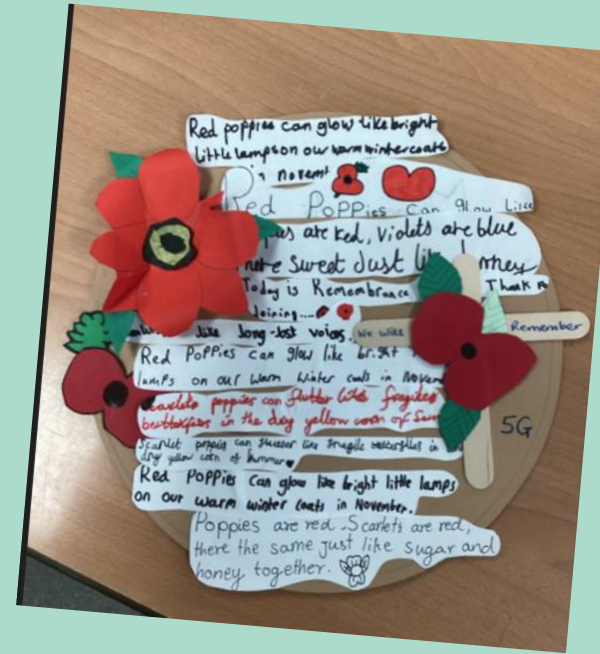 Red poppies can glow like bright
little lamps on our warm winter coats
in novem
Red Poppies can glow like
are Red, Violets are blue
sweet Just
Today is Remembrance Thank
Joining....
like long-lost voices.
We will Remember
Red Poppies can glow like bright
lamps on our warm winter coats in Novem
poppies can flutter like fragiles
in the dry yellow corn of Sum
Scarlet poppies can flutter like fragile butterflies in
dry yellow corn of
5G
Red Poppies Can glow like bright little lamps
on our warm winter coats in November.
Poppies are red. Scarlets are red,
there the same just like sugar and
honey together.